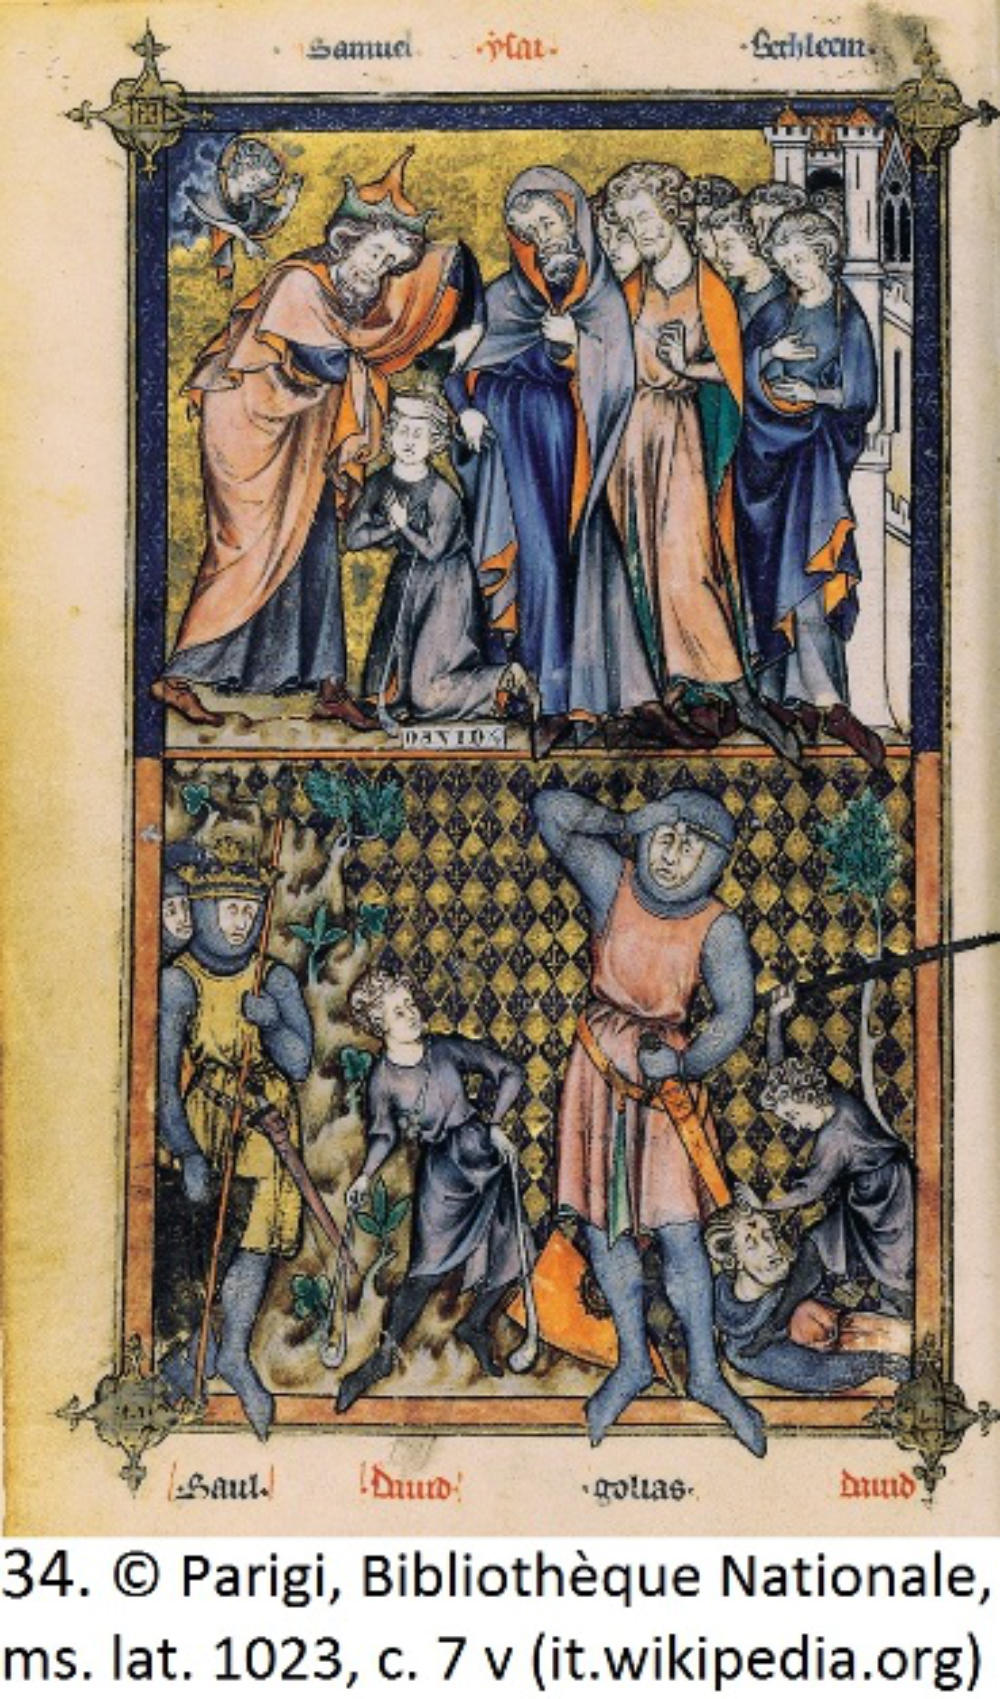 Samuel · ysai · Bethleem ·
DAVID
· Saul · Dauid · golias · dauid
34. © Parigi, Bibliothèque Nationale,
ms. lat. 1023, c. 7 v (it.wikipedia.org)